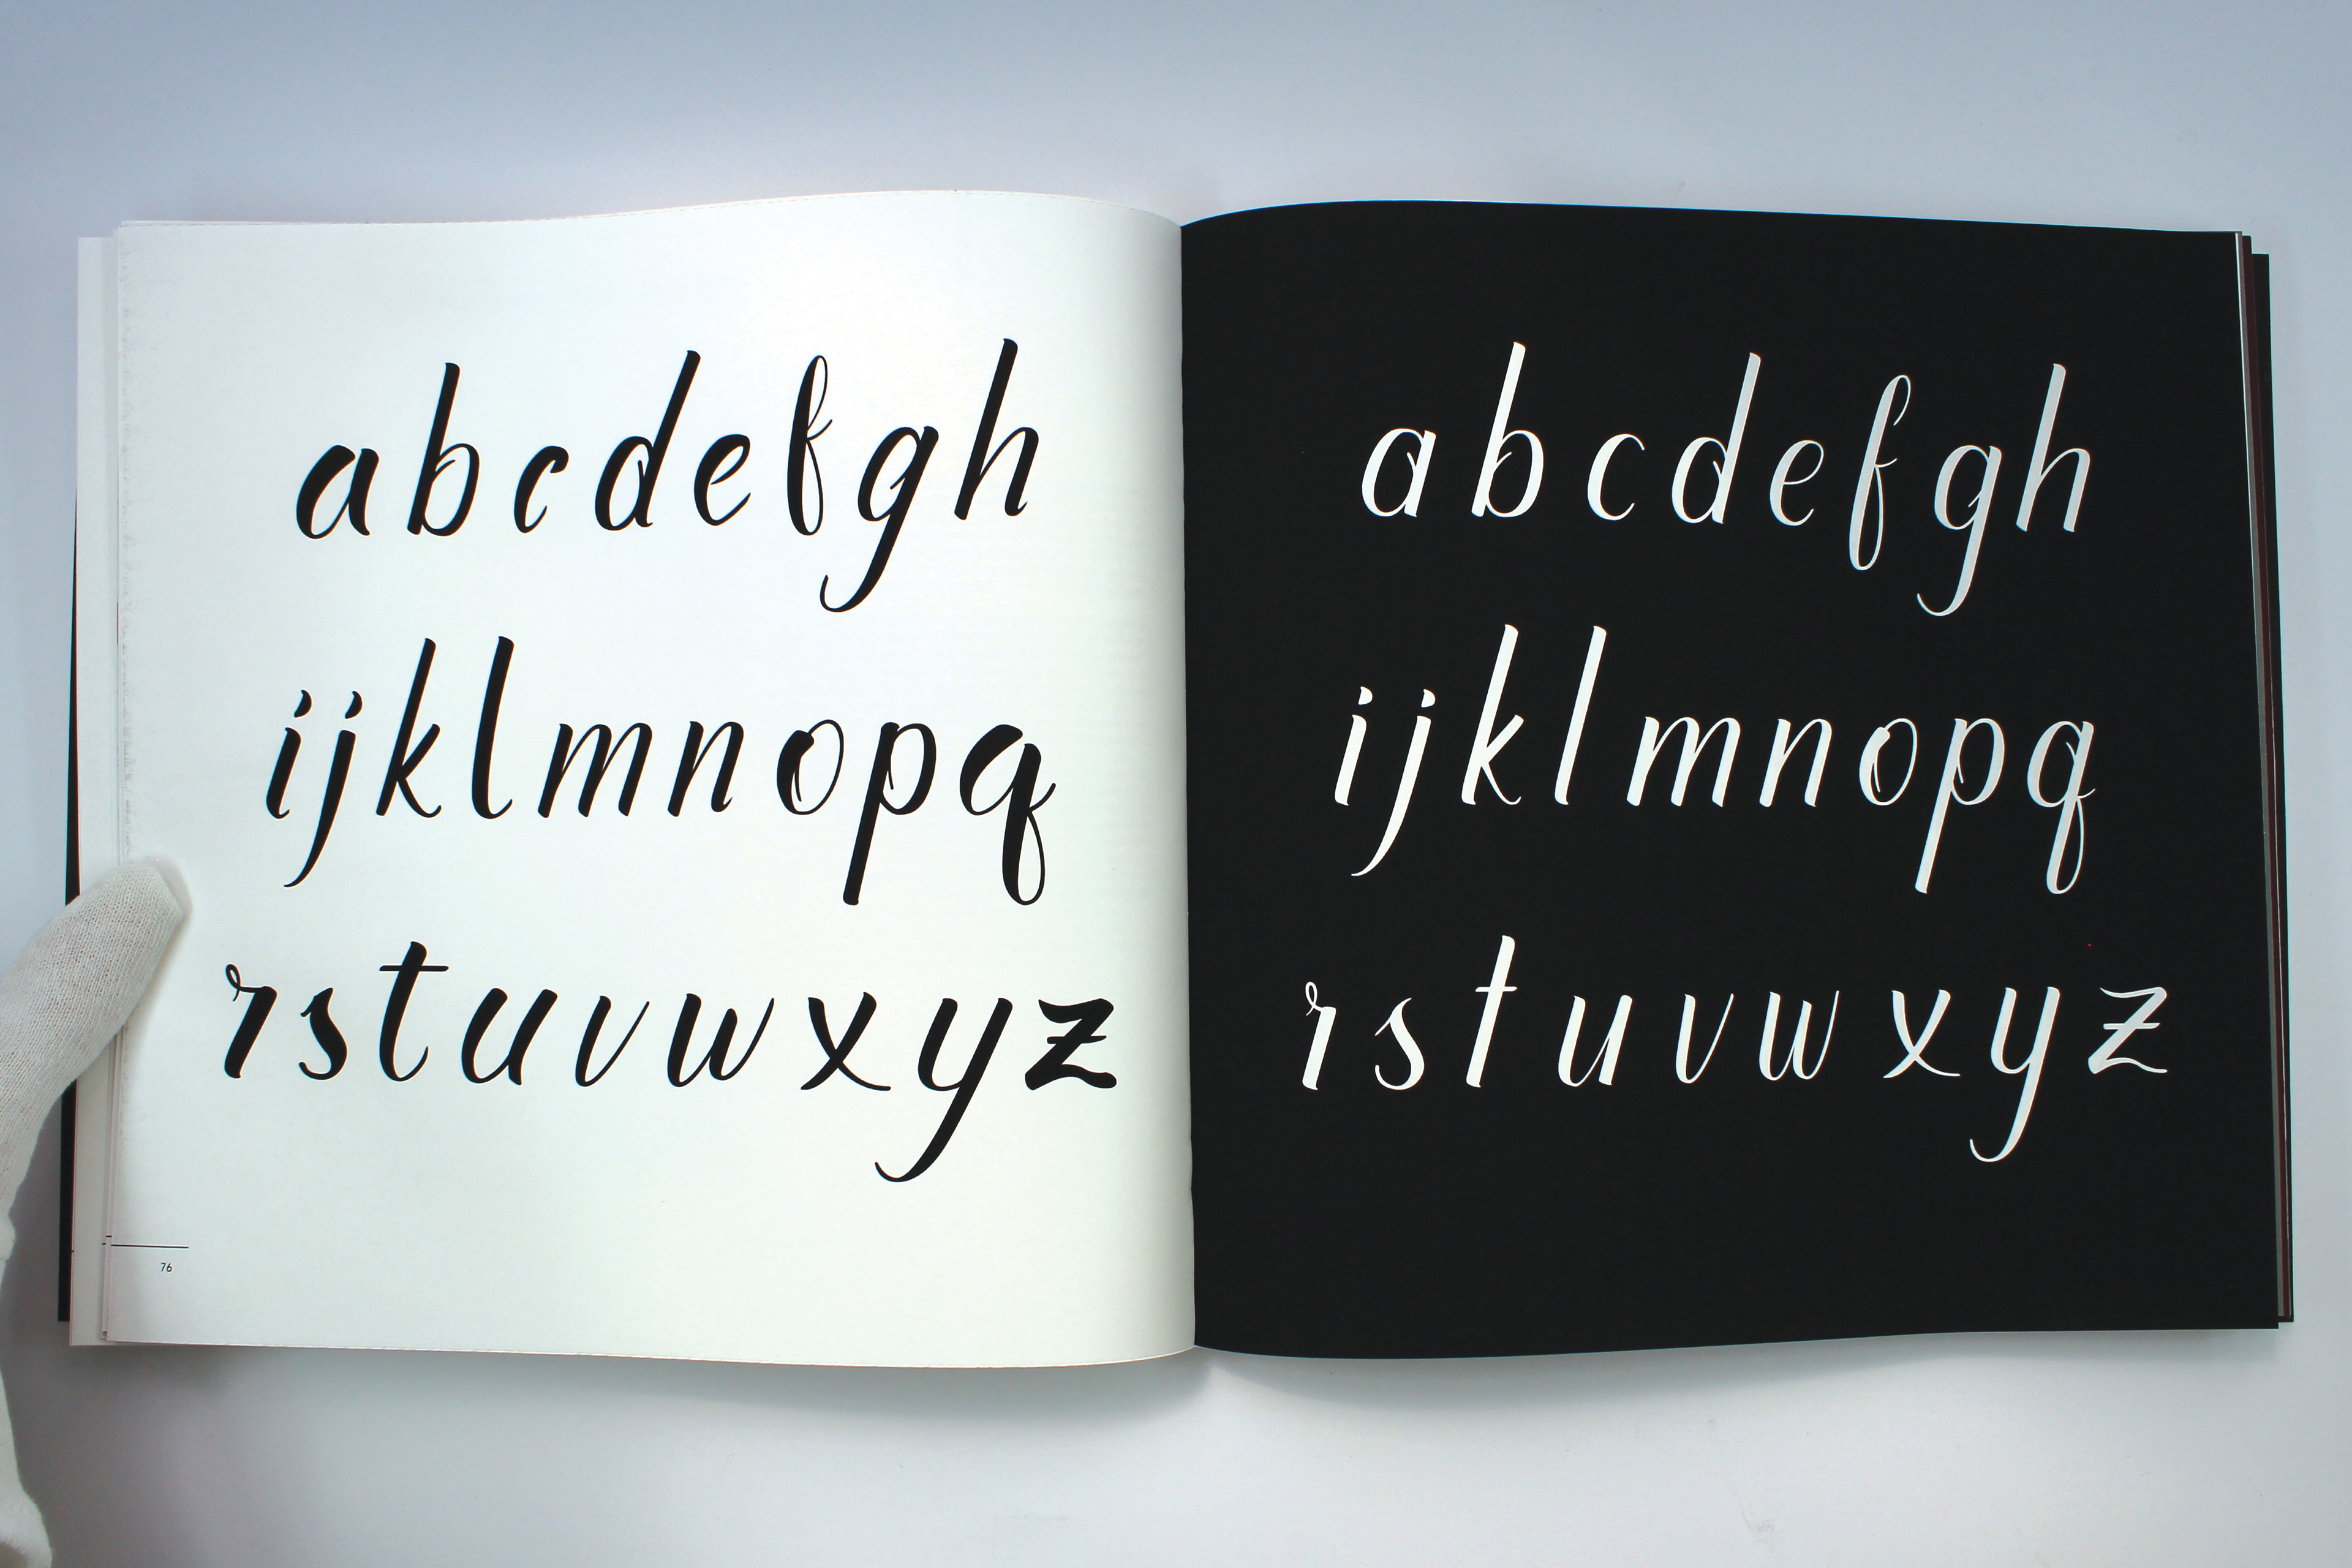 abcdefgh
ijklmnopq
rstuvwxyz
76
abcdefgh
ijklmnopq
rstuvwxyz